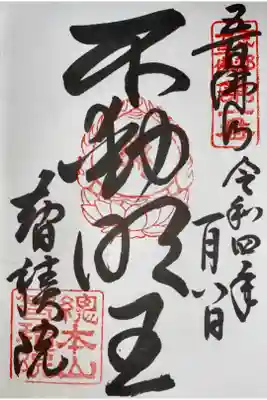 五百佛山
令和四年
一月八日
不動明王
智積院
總本山
智積院